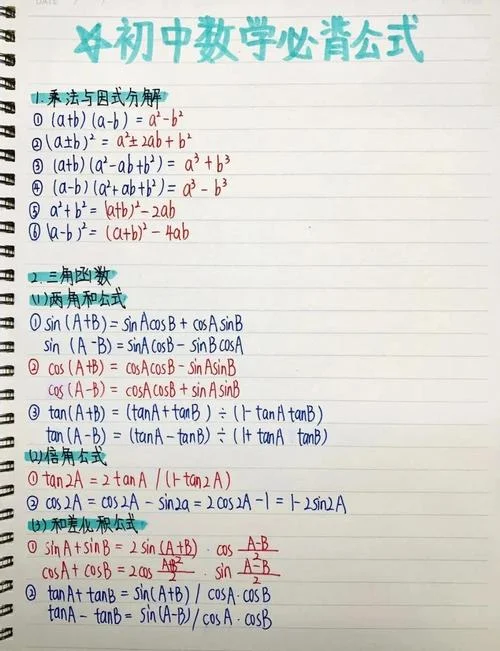 DATE
初中数学必背公式
1.乘法与因式分解
① (a+b)(a-b) = a²-b²
② (a±b)² = a²±2ab+b²
③ (a+b)(a²-ab+b²) = a³+b³
④ (a-b)(a²+ab+b²) = a³-b³
⑤ a²+b² = (a+b)²-2ab
⑥ (a-b)² = (a+b)²-4ab
2.三角函数
(1)两角和公式
① sin(A+B) = sinAcosB + cosAsinB
sin(A-B) = sinAcosB - sinBcosA
② cos(A+B) = cosAcosB - sinAsinB
cos(A-B) = cosAcosB + sinAsinB
③ tan(A+B) = (tanA+tanB) ÷ (1-tanAtanB)
tan(A-B) = (tanA-tanB) ÷ (1+tanA tanB)
(2)倍角公式
① tan2A = 2tanA / (1-tan2A)
② cos2A = cos2A - sin2a = 2cos2A-1 = 1-2sin2A
(3)和差化积公式
① sinA+sinB = 2sin (A+B)/2 · cos (A-B)/2
cosA+cosB = 2cos (A+B)/2 · sin (A-B)/2
② tanA+tanB = sin(A+B) / cosA·cosB
tanA-tanB = sin(A-B) / cosA·cosB